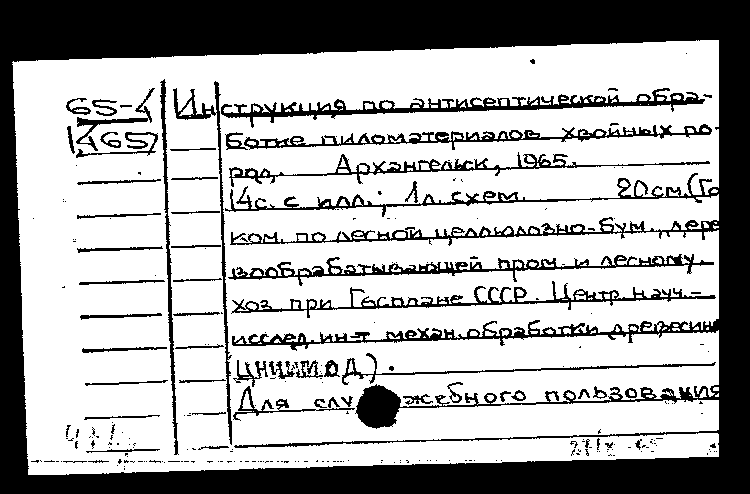 65-4
(465)
Инструкция по антисептической обра-
ботке пиломатериалов хвойных по-
род. Архангельск, 1965.
14 с. с илл.; 1 л. схем. 20 см. (Го
ком. по лесной, целлюлозно-бум., дере
вообрабатывающей пром. и лесному
хоз. при Госплане СССР. Центр. науч.-
исслед. ин-т механ. обработки древесин
ЦНИИМОД).
Для служебного пользования